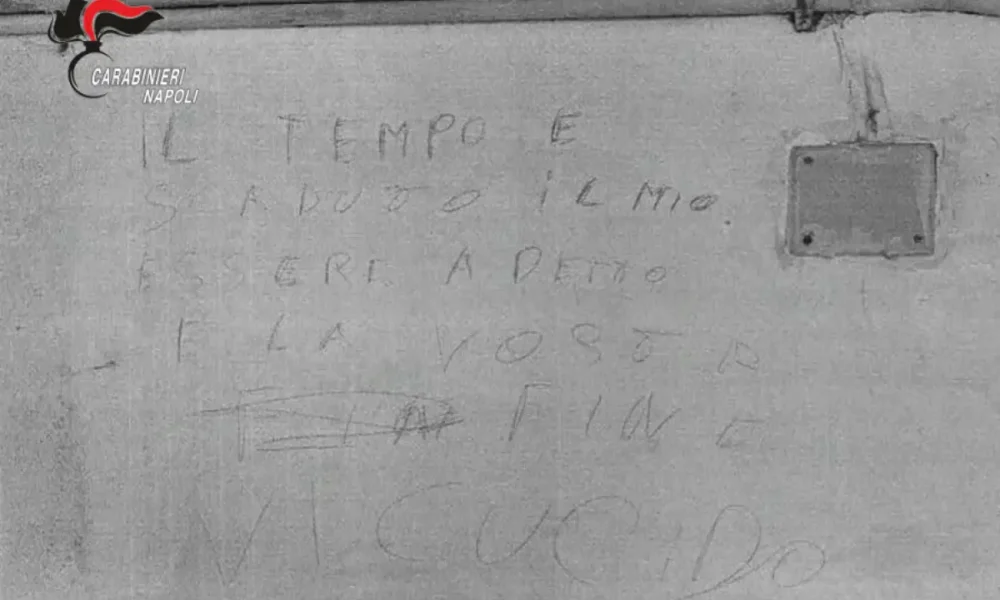 CARABINIERI
NAPOLI
IL TEMPO E
SCADUTO IL MIO
ESSERE A DETTO
E LA VOSTA
FINE
VI CUCIDO